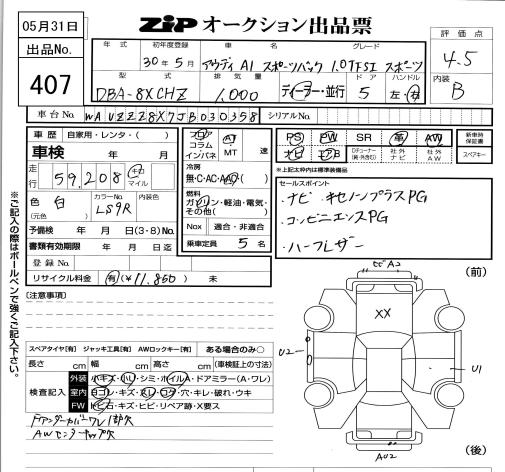 05月31日
ZIP オークション出品票
評価点
4.5
出品No.
407
年式 初年度登録 車名 グレード
30年5月 アウディ A1 スポーツバック 1.0TFSI スポーツ
型式 排気量 ドア ハンドル
DBA-8XCHZ 1,000 ディーラー・並行 5 左・右
内装
B
車台No. WAUZZZ8X7JB030358 シリアルNo.
車歴 自家用・レンタ・( )
車検 年 月
走行 59,208 キロ マイル
色 白 (元色) カラーNo. LS9R 内装色
予備検 年 月 日(3・8)
書類有効期限 年 月 日迄
登録No.
リサイクル料金 有(¥11,850) 未
フロア コラム インパネ
AT MT 速
冷房
無・C・AC・AAC
燃料
ガソリン・軽油・電気・その他( )
Nox 適合・非適合
乗車定員 5 名
PS PW SR 革 AW
ナビ エアB Dチューナー (純・外含む) 社外ナビ 社外AW
新車時保証書
スペアキー
※上記太枠内は標準装備品
セールスポイント
・ナビ・キセノンプラスPG
・コンビニエンスPG
・ハーフレザー
※ご記入の際はボールペンで強くご記入下さい。
(注意事項)
スペアタイヤ【有】 ジャッキ工具【有】 AWロックキー【有】 ある場合のみ○
長さ cm 幅 cm 高さ cm (車検証上の寸法)
検査記入
外装 小キズ・凹・シミ・ホイルA・ドアミラー(A・ワレ)
室内 ヨゴレ・キズ・スレ・コゲ・穴・キレ・破れ・ウキ
FW トビ石・キズ・ヒビ・リペア跡・X要ス
Fアンダーカバーワレ1部欠
AWセンターキャップ欠
(前)
ヒビA2
XX
U2
U1
AU2
(後)